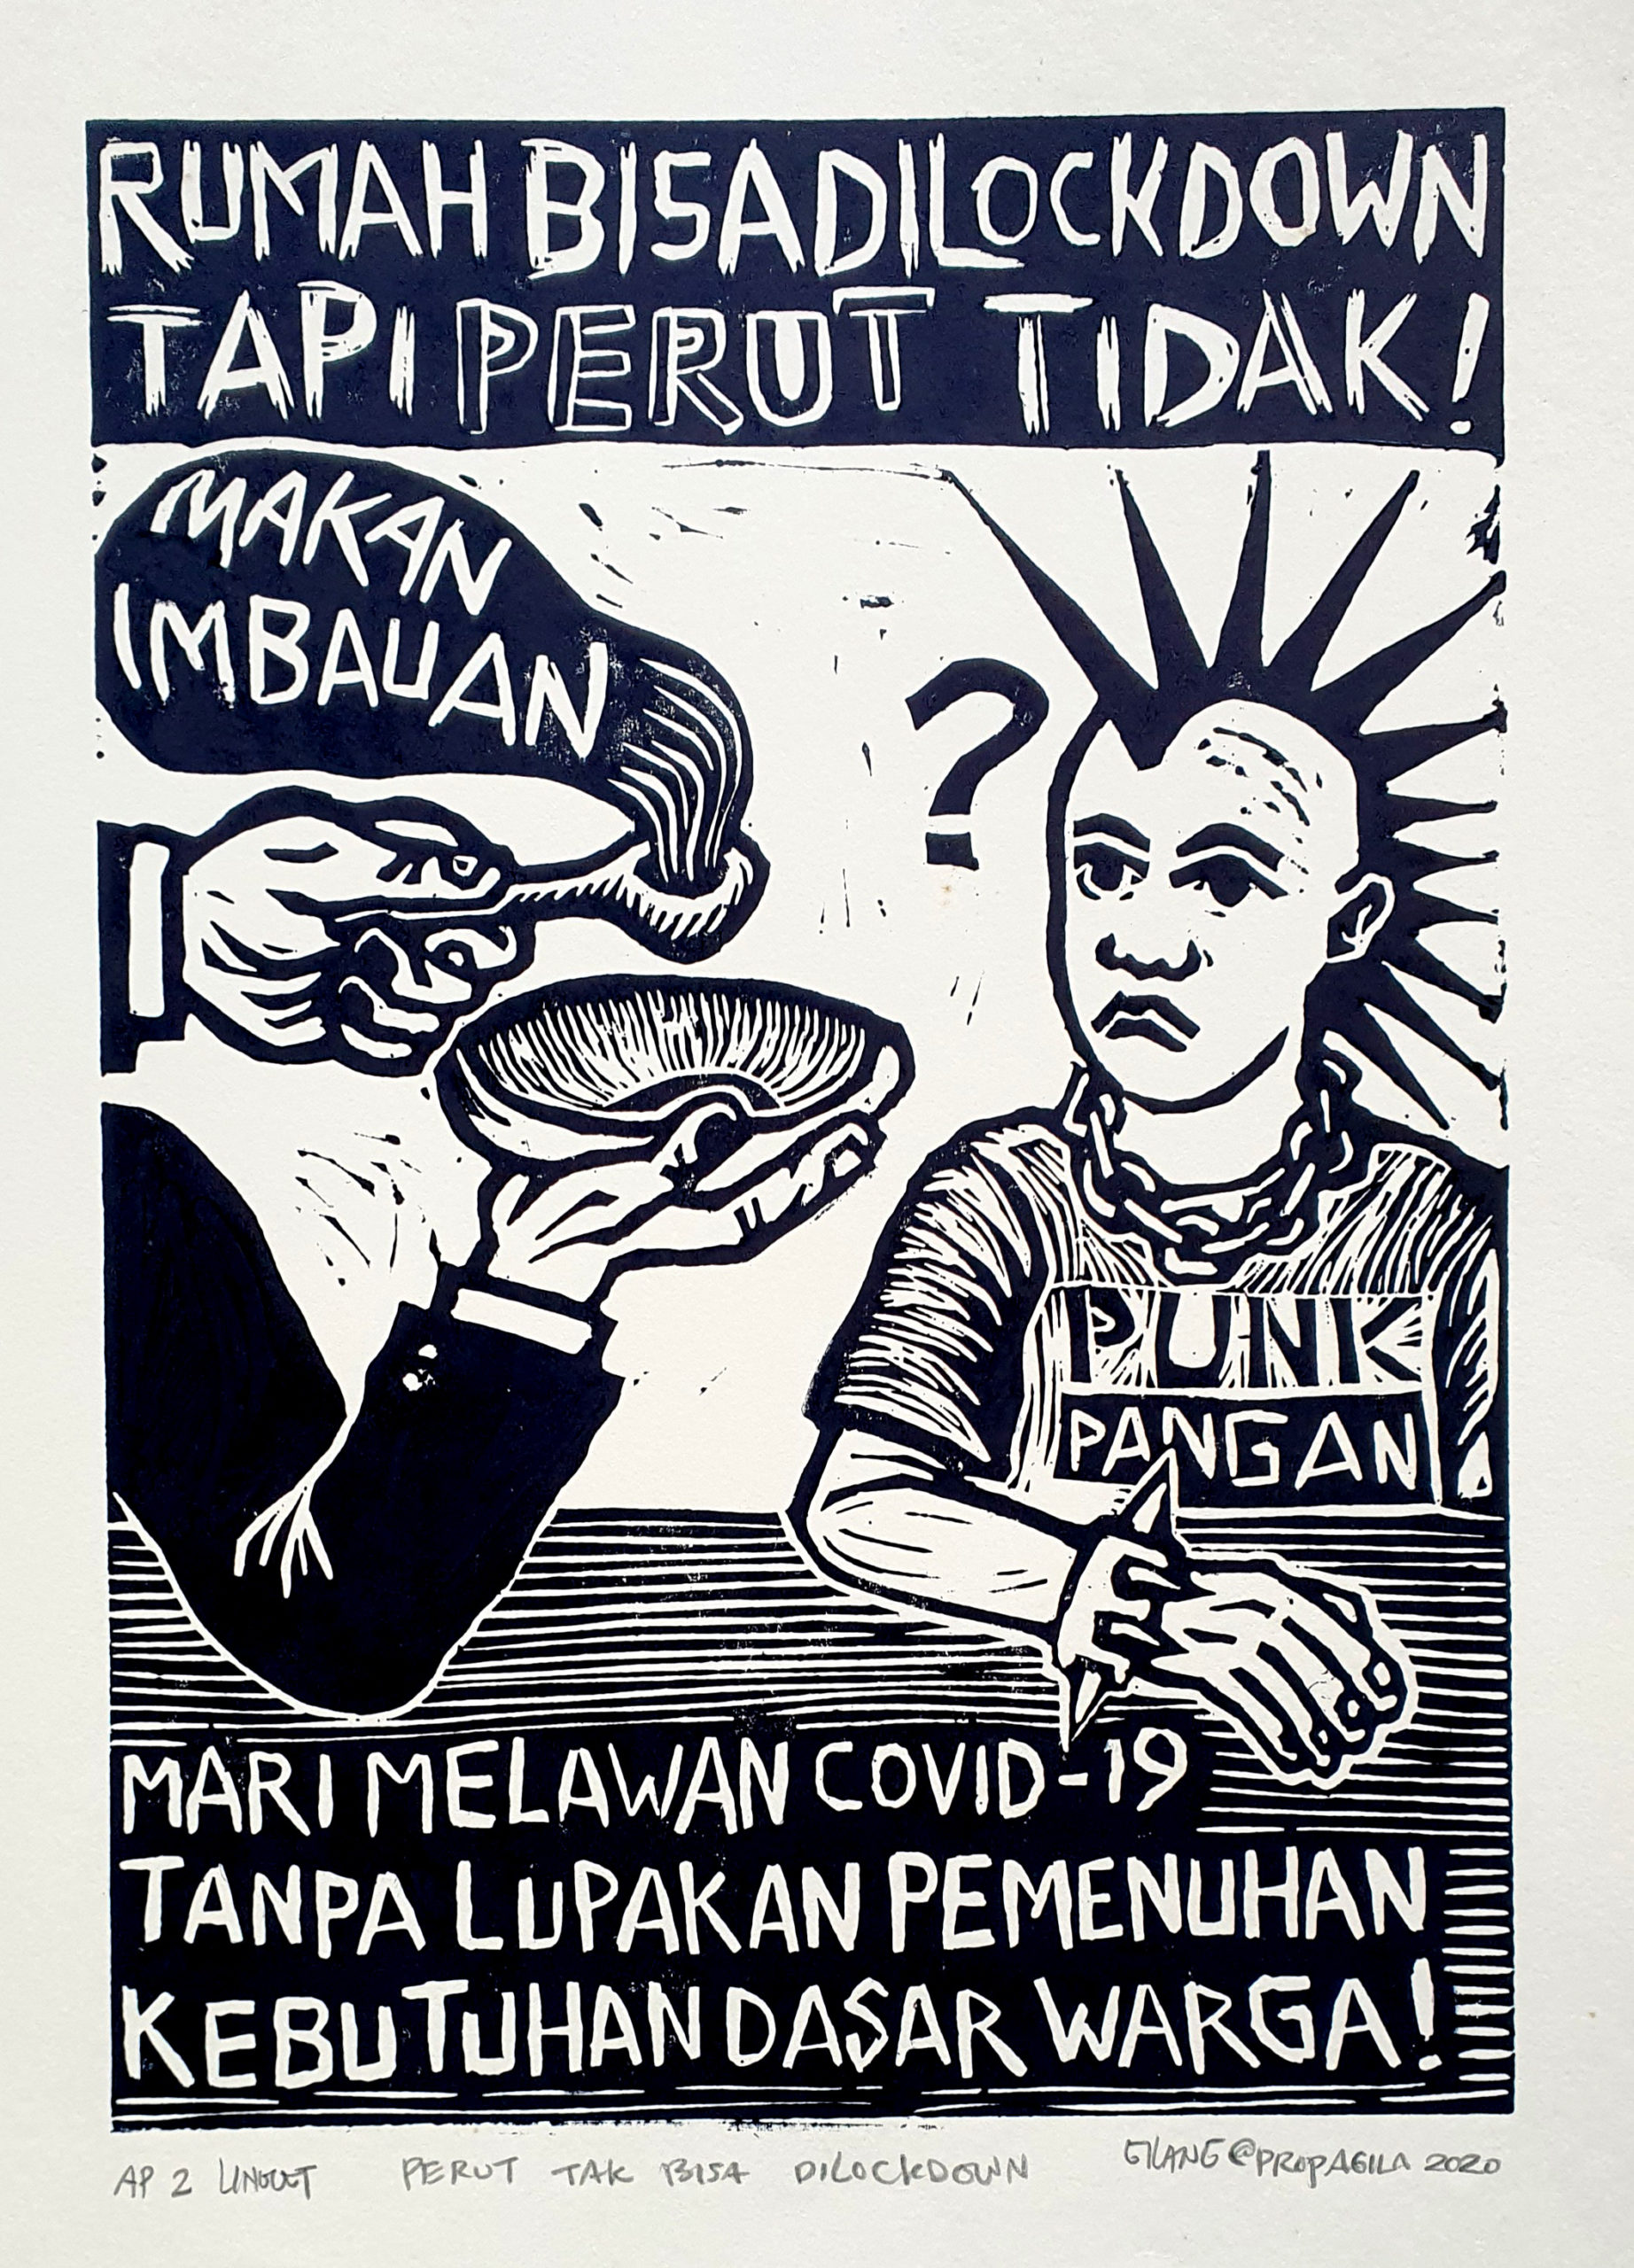 RUMAH BISA DILOCKDOWN
TAPI PERUT TIDAK!
MAKAN
IMBAUAN
?
PUNK
PANGAN
MARI MELAWAN COVID-19
TANPA LUPAKAN PEMENUHAN
KEBUTUHAN DASAR WARGA!
AP 2 LINOCUT PERUT TAK BISA DILOCKDOWN GILANG@PROPAGILA 2020